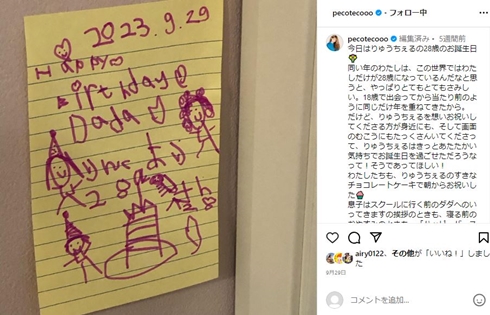 2023.9.29
Happy
Birthday
Dada
28
pecotecooo・フォロー中
pecotecooo 編集済み・5週間前
今日はりゅうちぇるの28歳のお誕生日
同い年のわたしは、この世界ではわたしだけが28歳になっているんだなと思うと、やっぱりとてもとてもさみしい。18歳で出会ってから当たり前のように同じだけ年を重ねてきたから。
だけど、りゅうちぇるを想いお祝いしてくださる方が身近にも、そして画面のむこうにもたっくさんいてくださって、りゅうちぇるはきっとあたたかい気持ちでお誕生日を過ごせただろうなって！そうであってほしい！
わたしたちも、りゅうちぇるのすきなチョコレートケーキで朝からお祝いした
息子はスクールに行く前のダダへのいってきますの挨拶のときも、寝る前の
airy0122、その他が「いいね！」しました
9月29日
コメントを追加...